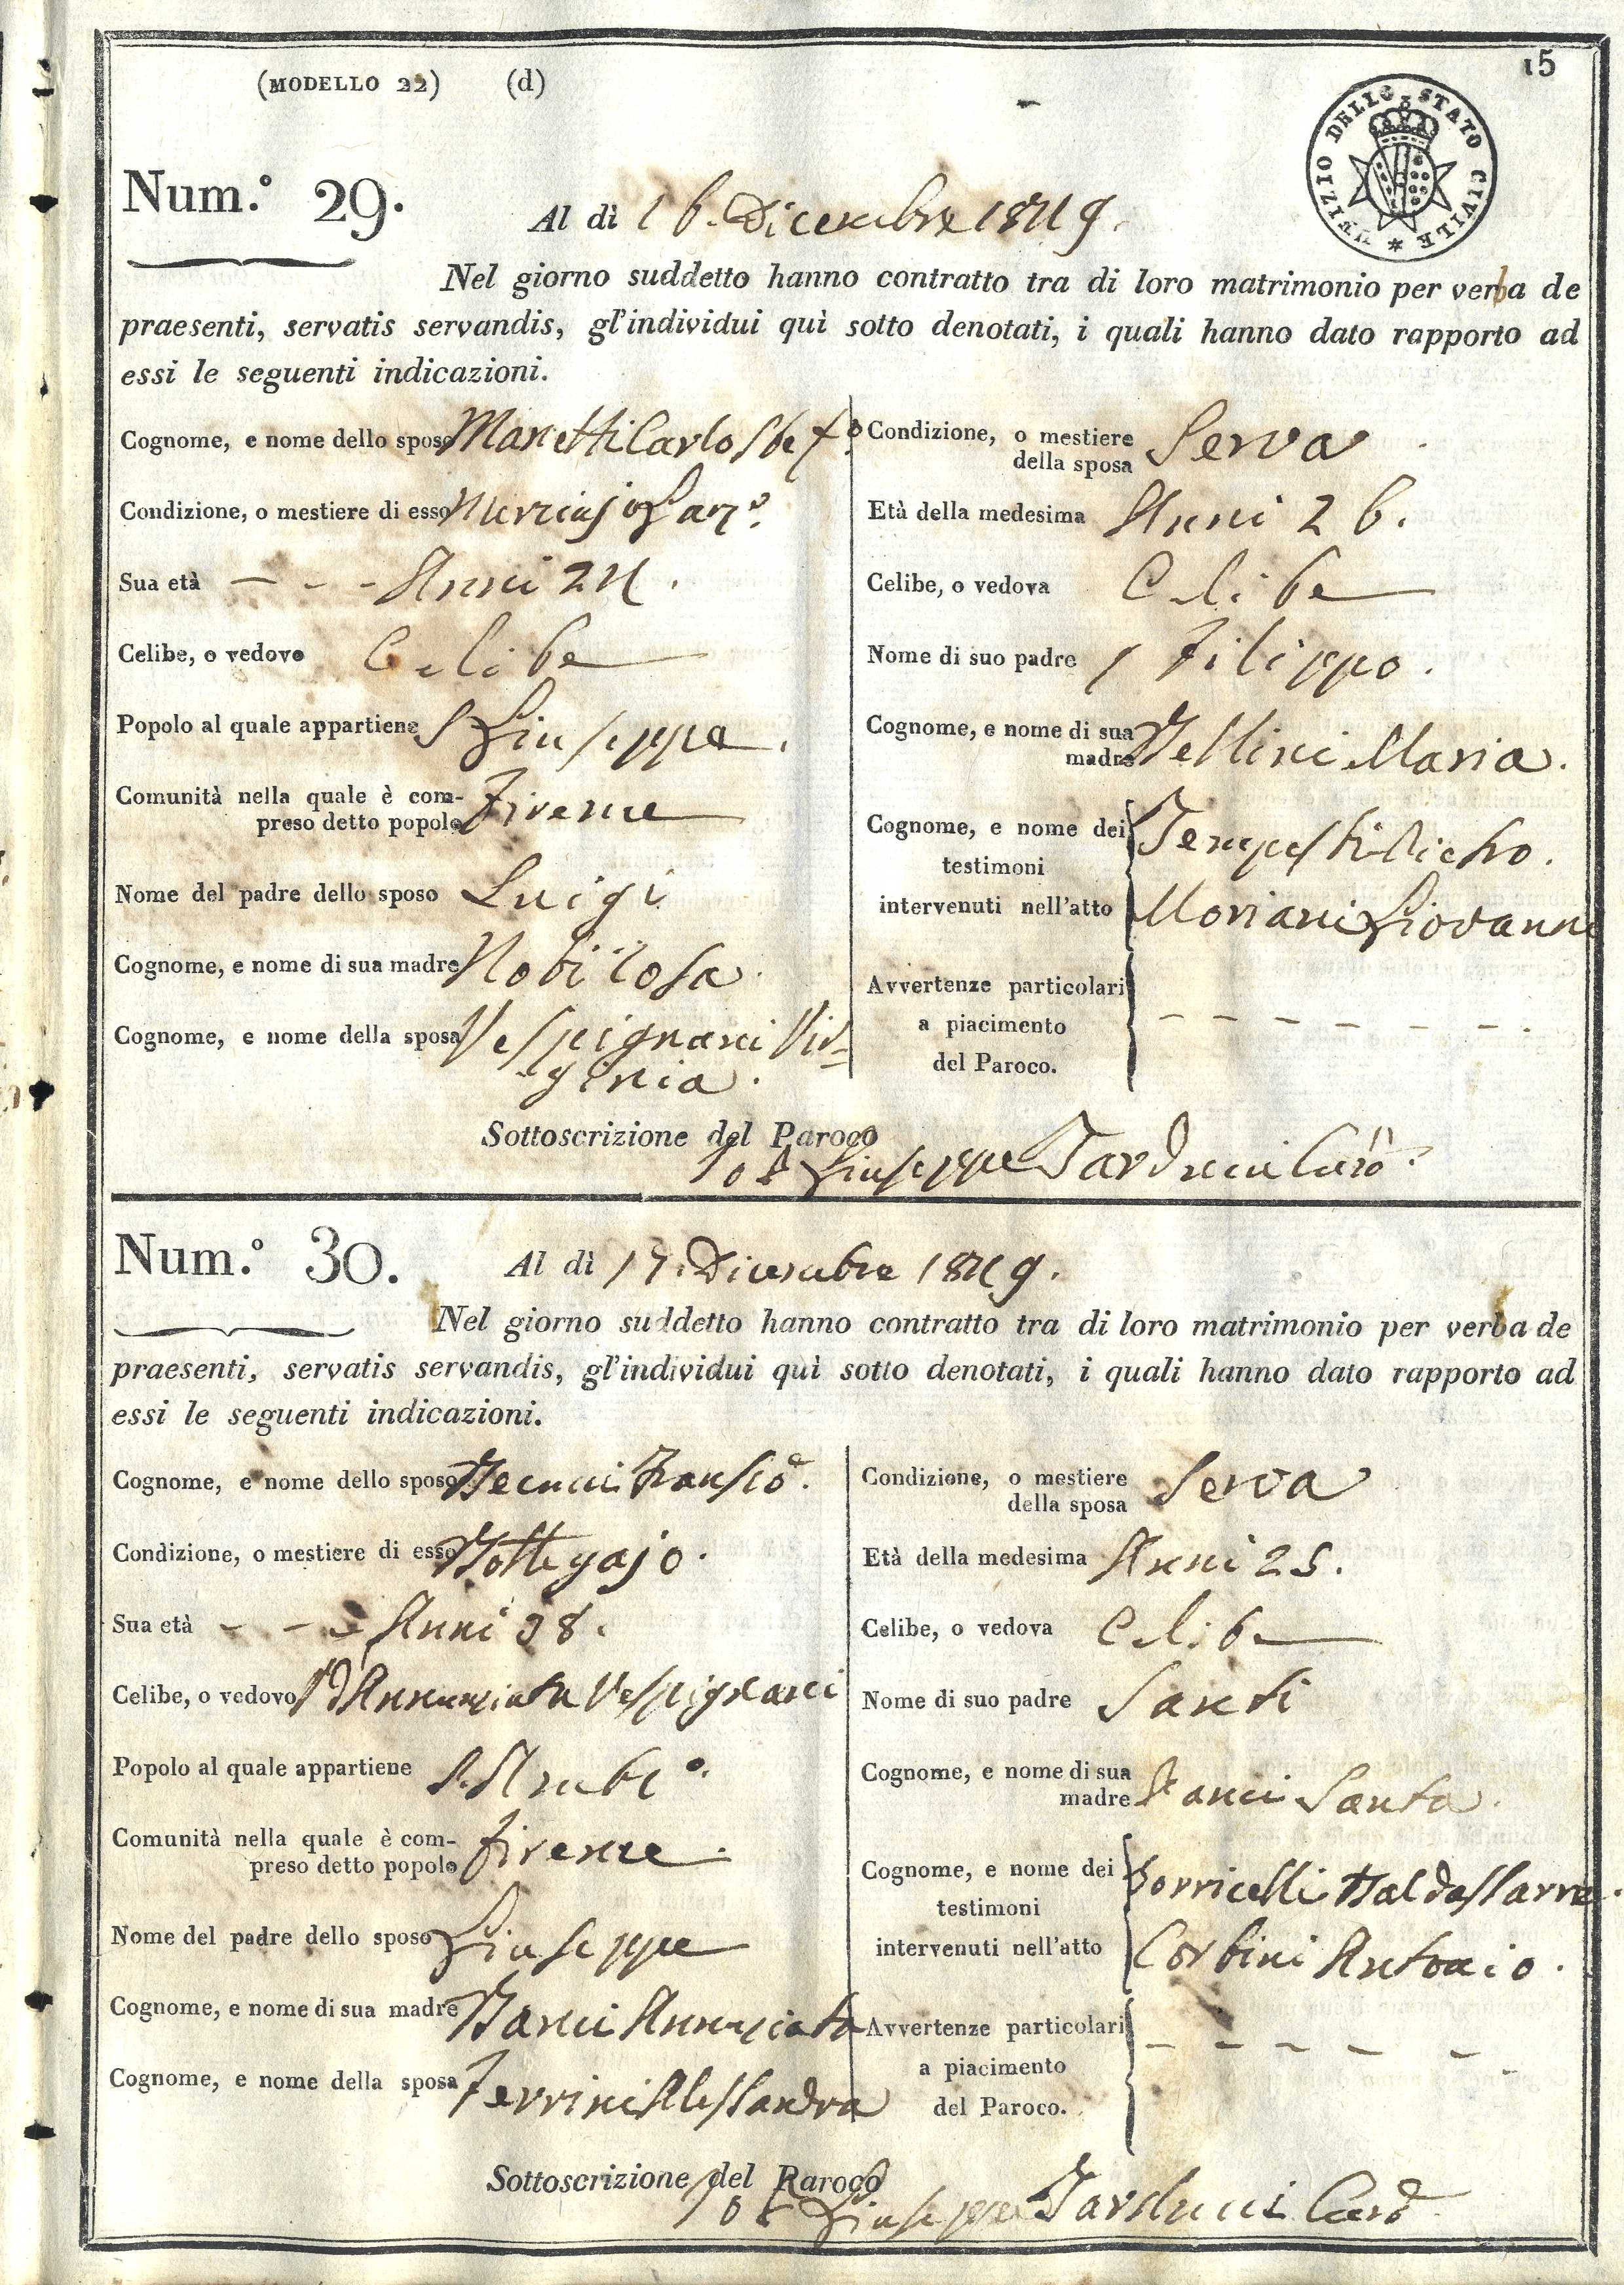 15
(MODELLO 22) (d)
UFIZIO DELLO STATO CIVILE *
Num.° 29.
Al dì 16. Dicembre 1849.
Nel giorno suddetto hanno contratto tra di loro matrimonio per verba de
praesenti, servatis servandis, gl'individui quì sotto denotati, i quali hanno dato rapporto ad
essi le seguenti indicazioni.
Cognome, e nome dello sposo Manetti Carlo
Condizione, o mestiere di esso Merciajo
Sua età - - - Anni 24.
Celibe, o vedovo Celibe
Popolo al quale appartiene S Giuseppe.
Comunità nella quale è com-
preso detto popolo Firenze
Nome del padre dello sposo Luigi
Cognome, e nome di sua madre Nobi Rosa.
Cognome, e nome della sposa Vespignani Vir=
ginia.
Condizione, o mestiere
della sposa Serva
Età della medesima Anni 26.
Celibe, o vedova Celibe
Nome di suo padre Filippo.
Cognome, e nome di sua
madre Bellini Maria.
Cognome, e nome dei Tempesti
testimoni
intervenuti nell'atto Moriani Giovanni
Avvertenze particolari
a piacimento - - - - - - - -.
del Paroco.
Sottoscrizione del Paroco
Giuseppe Tarducci
Num.° 30.
Al dì 17. Dicembre 1849.
Nel giorno suddetto hanno contratto tra di loro matrimonio per verba de
praesenti, servatis servandis, gl'individui quì sotto denotati, i quali hanno dato rapporto ad
essi le seguenti indicazioni.
Cognome, e nome dello sposo
Condizione, o mestiere di esso Bottegajo.
Sua età - - - Anni 38.
Celibe, o vedovo Annunziata Vespignani
Popolo al quale appartiene S. Amb°.
Comunità nella quale è com-
preso detto popolo Firenze.
Nome del padre dello sposo Giuseppe
Cognome, e nome di sua madre Banci Annunziata
Cognome, e nome della sposa Ferrini Alessandra
Condizione, o mestiere
della sposa Serva
Età della medesima Anni 25.
Celibe, o vedova Celibe
Nome di suo padre Santi
Cognome, e nome di sua
madre Santa.
Cognome, e nome dei Torricelli Baldassarre.
testimoni
intervenuti nell'atto Corbini Antonio.
Avvertenze particolari - - - - - -
a piacimento
del Paroco.
Sottoscrizione del Paroco
Giuseppe Tarducci